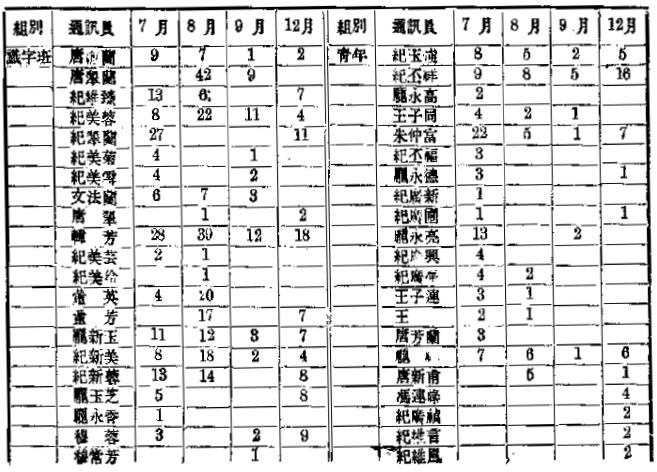 組別 通訊員 7月 8月 9月 12月 組別 通訊員 7月 8月 9月 12月
識字班 唐 蘭 9 7 1 2 青年 紀玉 8 5 2 5
唐翠蘭 42 9 紀丕祥 9 8 5 16
紀維 13 6 7 龐永高 2
紀美蓉 8 22 11 4 王子同 4 2 1
紀翠蘭 27 11 朱仲富 22 5 1 7
紀美菊 4 1 紀丕福 3
紀美雪 4 2 龐永德 3 1
文法蘭 6 7 3 紀廣新 1
唐 1 2 紀廣圃 1 1
韓芳 28 39 12 18 龐永亮 13 2
紀美芸 2 1 紀 興 4
紀美 1 紀廣年 4 2
董英 4 20 王子連 3 1
董芳 17 7 王 2 1
龐新玉 11 12 3 7 唐芳蘭 3
紀新美 8 18 2 4 龐 7 6 1 6
紀新蓉 13 14 8 唐新甫 5 1
龐玉芝 5 8 馮連峰 4
龐永香 1 紀廣禎 2
穆蓉 3 2 9 紀維言 2
穆常芳 1 紀維鳳 2